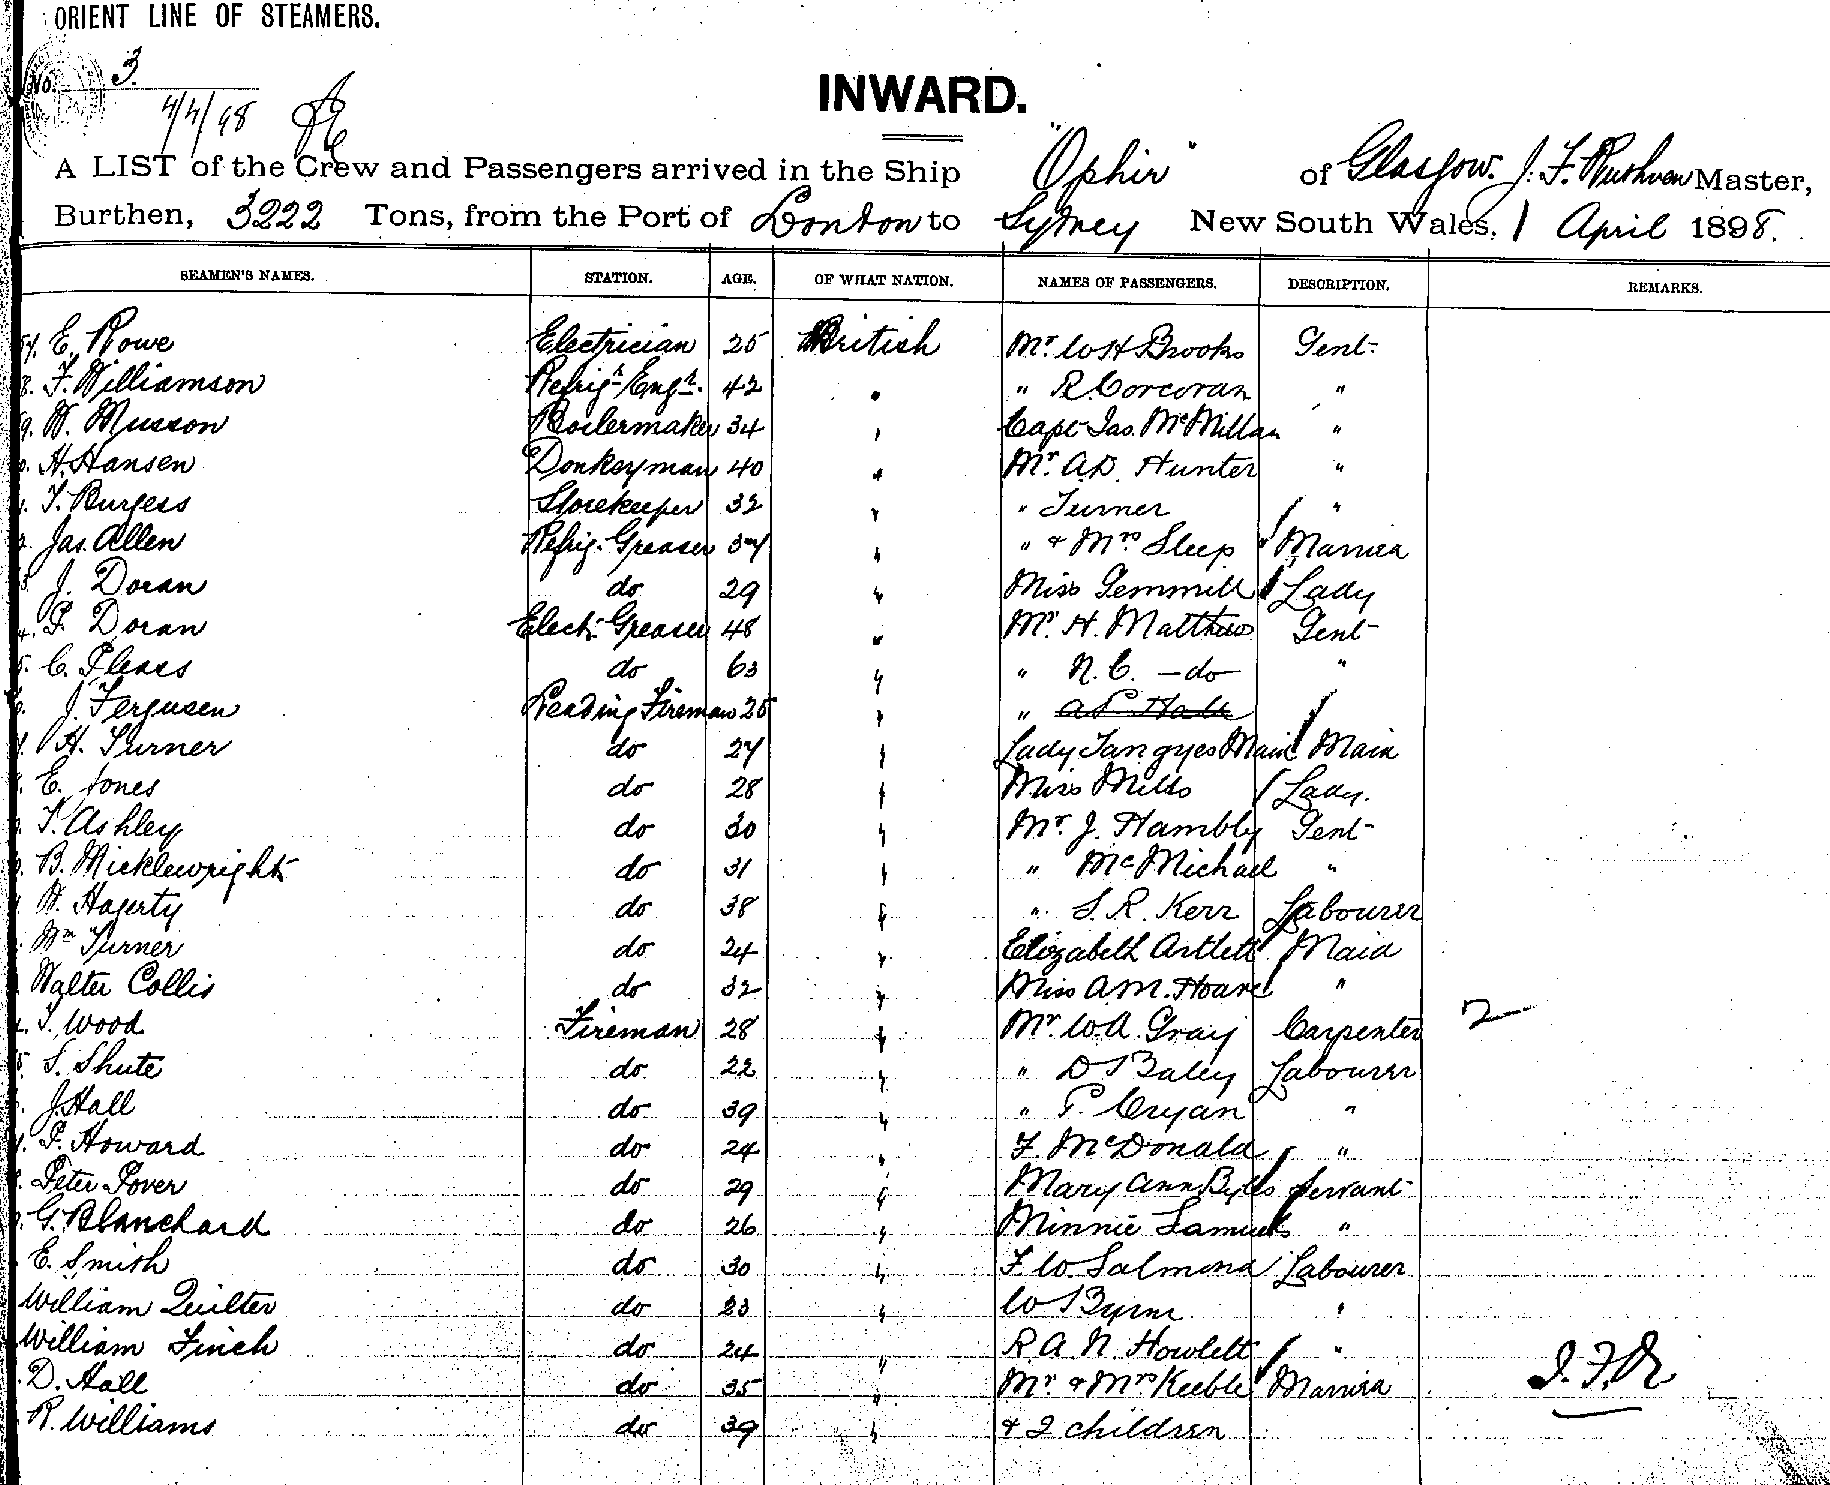 ORIENT LINE OF STEAMERS.
No. 3
4/4/98
INWARD.
A LIST of the Crew and Passengers arrived in the Ship "Ophir" of Glasgow. J. F. Ruthven Master,
Burthen, 3222 Tons, from the Port of London to Sydney New South Wales, 1 April 1898.
SEAMEN'S NAMES. STATION. AGE. OF WHAT NATION. NAMES OF PASSENGERS. DESCRIPTION. REMARKS.
E. Rowe Electrician 25 British Mr. W H Brooks Gent.
8. F. Williamson Refrigr. Engr. 42 " " R. Corcoran "
9. W. Musson Boilermaker 34 " Capt Jas. McMillan "
H. Hansen Donkeyman 40 " Mr. A.D. Hunter "
T. Burgess Storekeeper 32 " " Turner "
Jas. Allen Refrig. Greaser 37 " " & Mrs Sleep Married
J. Doran do 29 " Miss Gemmill Lady
4. P. Doran Elect. Greaser 48 " Mr. H. Matthews Gent
5. C. Pleass do 63 " " N. C. - do "
J. Fergusen Leading Fireman 25 " " A P Hall
H. Turner do 27 " Lady Tangyes Maid Maid
E. Jones do 28 " Miss Mills Lady.
T. Ashley do 30 " Mr. J. Hambly Gent
B. Micklewright do 31 " " McMichael "
W. Hagerty do 38 " " S. R. Kerr Labourer
Wm Turner do 24 " Elizabeth Artlett Maid
Walter Collis do 32 " Miss A.M. Hoare "
T. Wood Fireman 28 " Mr. W.A. Gray Carpenter 2
5. S. Shute do 22 " " D Baley Labourer
J. Hall do 39 " " P. Cryan "
P. Howard do 24 " F. McDonald "
Peter Pover do 29 " Mary Ann Servant
G. Blanchard do 26 " Minnie Samuels "
E. Smith do 30 " F. W. Salmond Labourer
William Quilter do 23 " W Byrne "
William Finch do 24 " R. A. N. Howlett "
D. Hall do 35 " Mr & Mrs Keeble Married J.F.R.
R. Williams do 39 " & 2 children